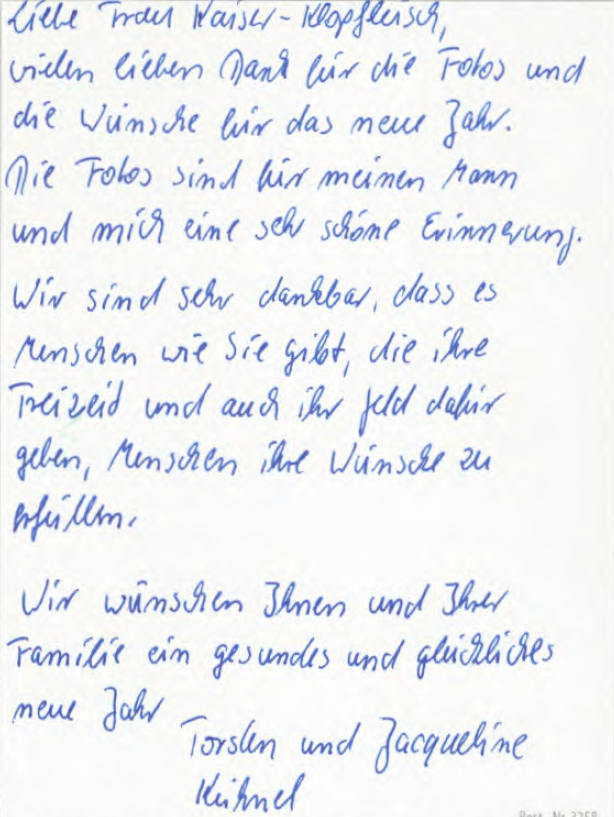 Liebe Frau Kaiser-Klopfleisch,
vielen lieben Dank für die Fotos und
die Wünsche für das neue Jahr.
Die Fotos sind für meinen Mann
und mich eine sehr schöne Erinnerung.
Wir sind sehr dankbar, dass es
Menschen wie Sie gibt, die ihre
Freizeid und auch ihr Geld dafür
geben, Menschen ihre Wünsche zu
erfüllen.
Wir wünschen Ihnen und Ihrer
Familie ein gesundes und glückliches
neue Jahr
Torsten und Jacqueline
Kühnel
Best.-Nr. 3258